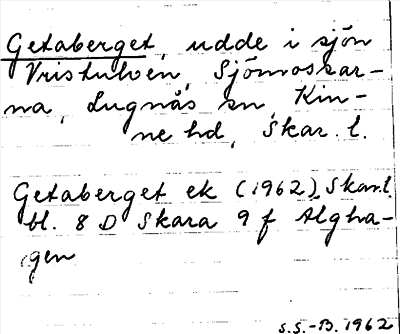 Getaberget, udde i sjön
Vristulven, Sjömossar-
na, Lugnås sn, Kin-
ne hd, Skar. l.
Getaberget ek (1962), Skar.l.
bl. 8 D Skara 9 f Älgha-
gen
S.S.-B. 1962